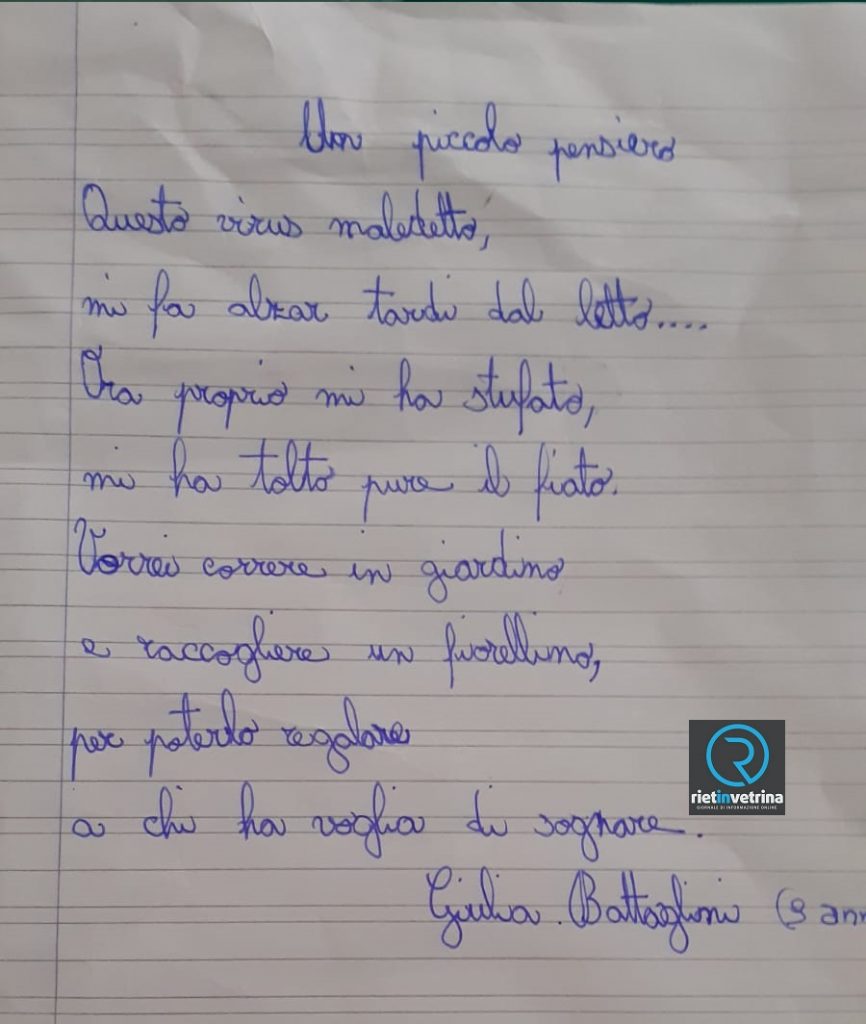 Un piccolo pensiero
Questo virus maledetto,
mi fa alzar tardi dal letto....
Ora proprio mi ha stufato,
mi ha tolto pure il fiato.
Vorrei correre in giardino
e raccogliere un fiorellino,
per poterlo regalare
a chi ha voglia di sognare.
Giulia Battaglini (9 ann
rietinvetrina
GIORNALE DI INFORMAZIONE ONLINE